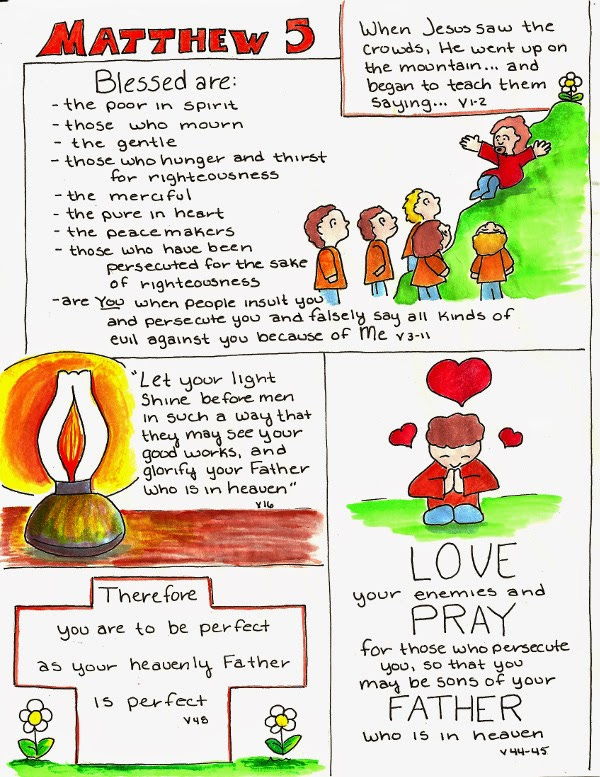 MATTHEW 5
When Jesus saw the
crowds, He went up on
the mountain... and
began to teach them
saying... V1-2
Blessed are:
- the poor in spirit
- those who mourn
- the gentle
- those who hunger and thirst
for righteousness
- the merciful
- the pure in heart
- the peacemakers
- those who have been
persecuted for the sake
of righteousness
- are You when people insult you
and persecute you and falsely say all kinds of
evil against you because of Me V3-11
"Let your light
Shine before men
in such a way that
they may see your
good works, and
glorify your Father
who is in heaven"
V16
Therefore
you are to be perfect
as your heavenly Father
is perfect
V48
LOVE
your enemies and
PRAY
for those who persecute
you, so that you
may be sons of your
FATHER
who is in heaven
V44-45